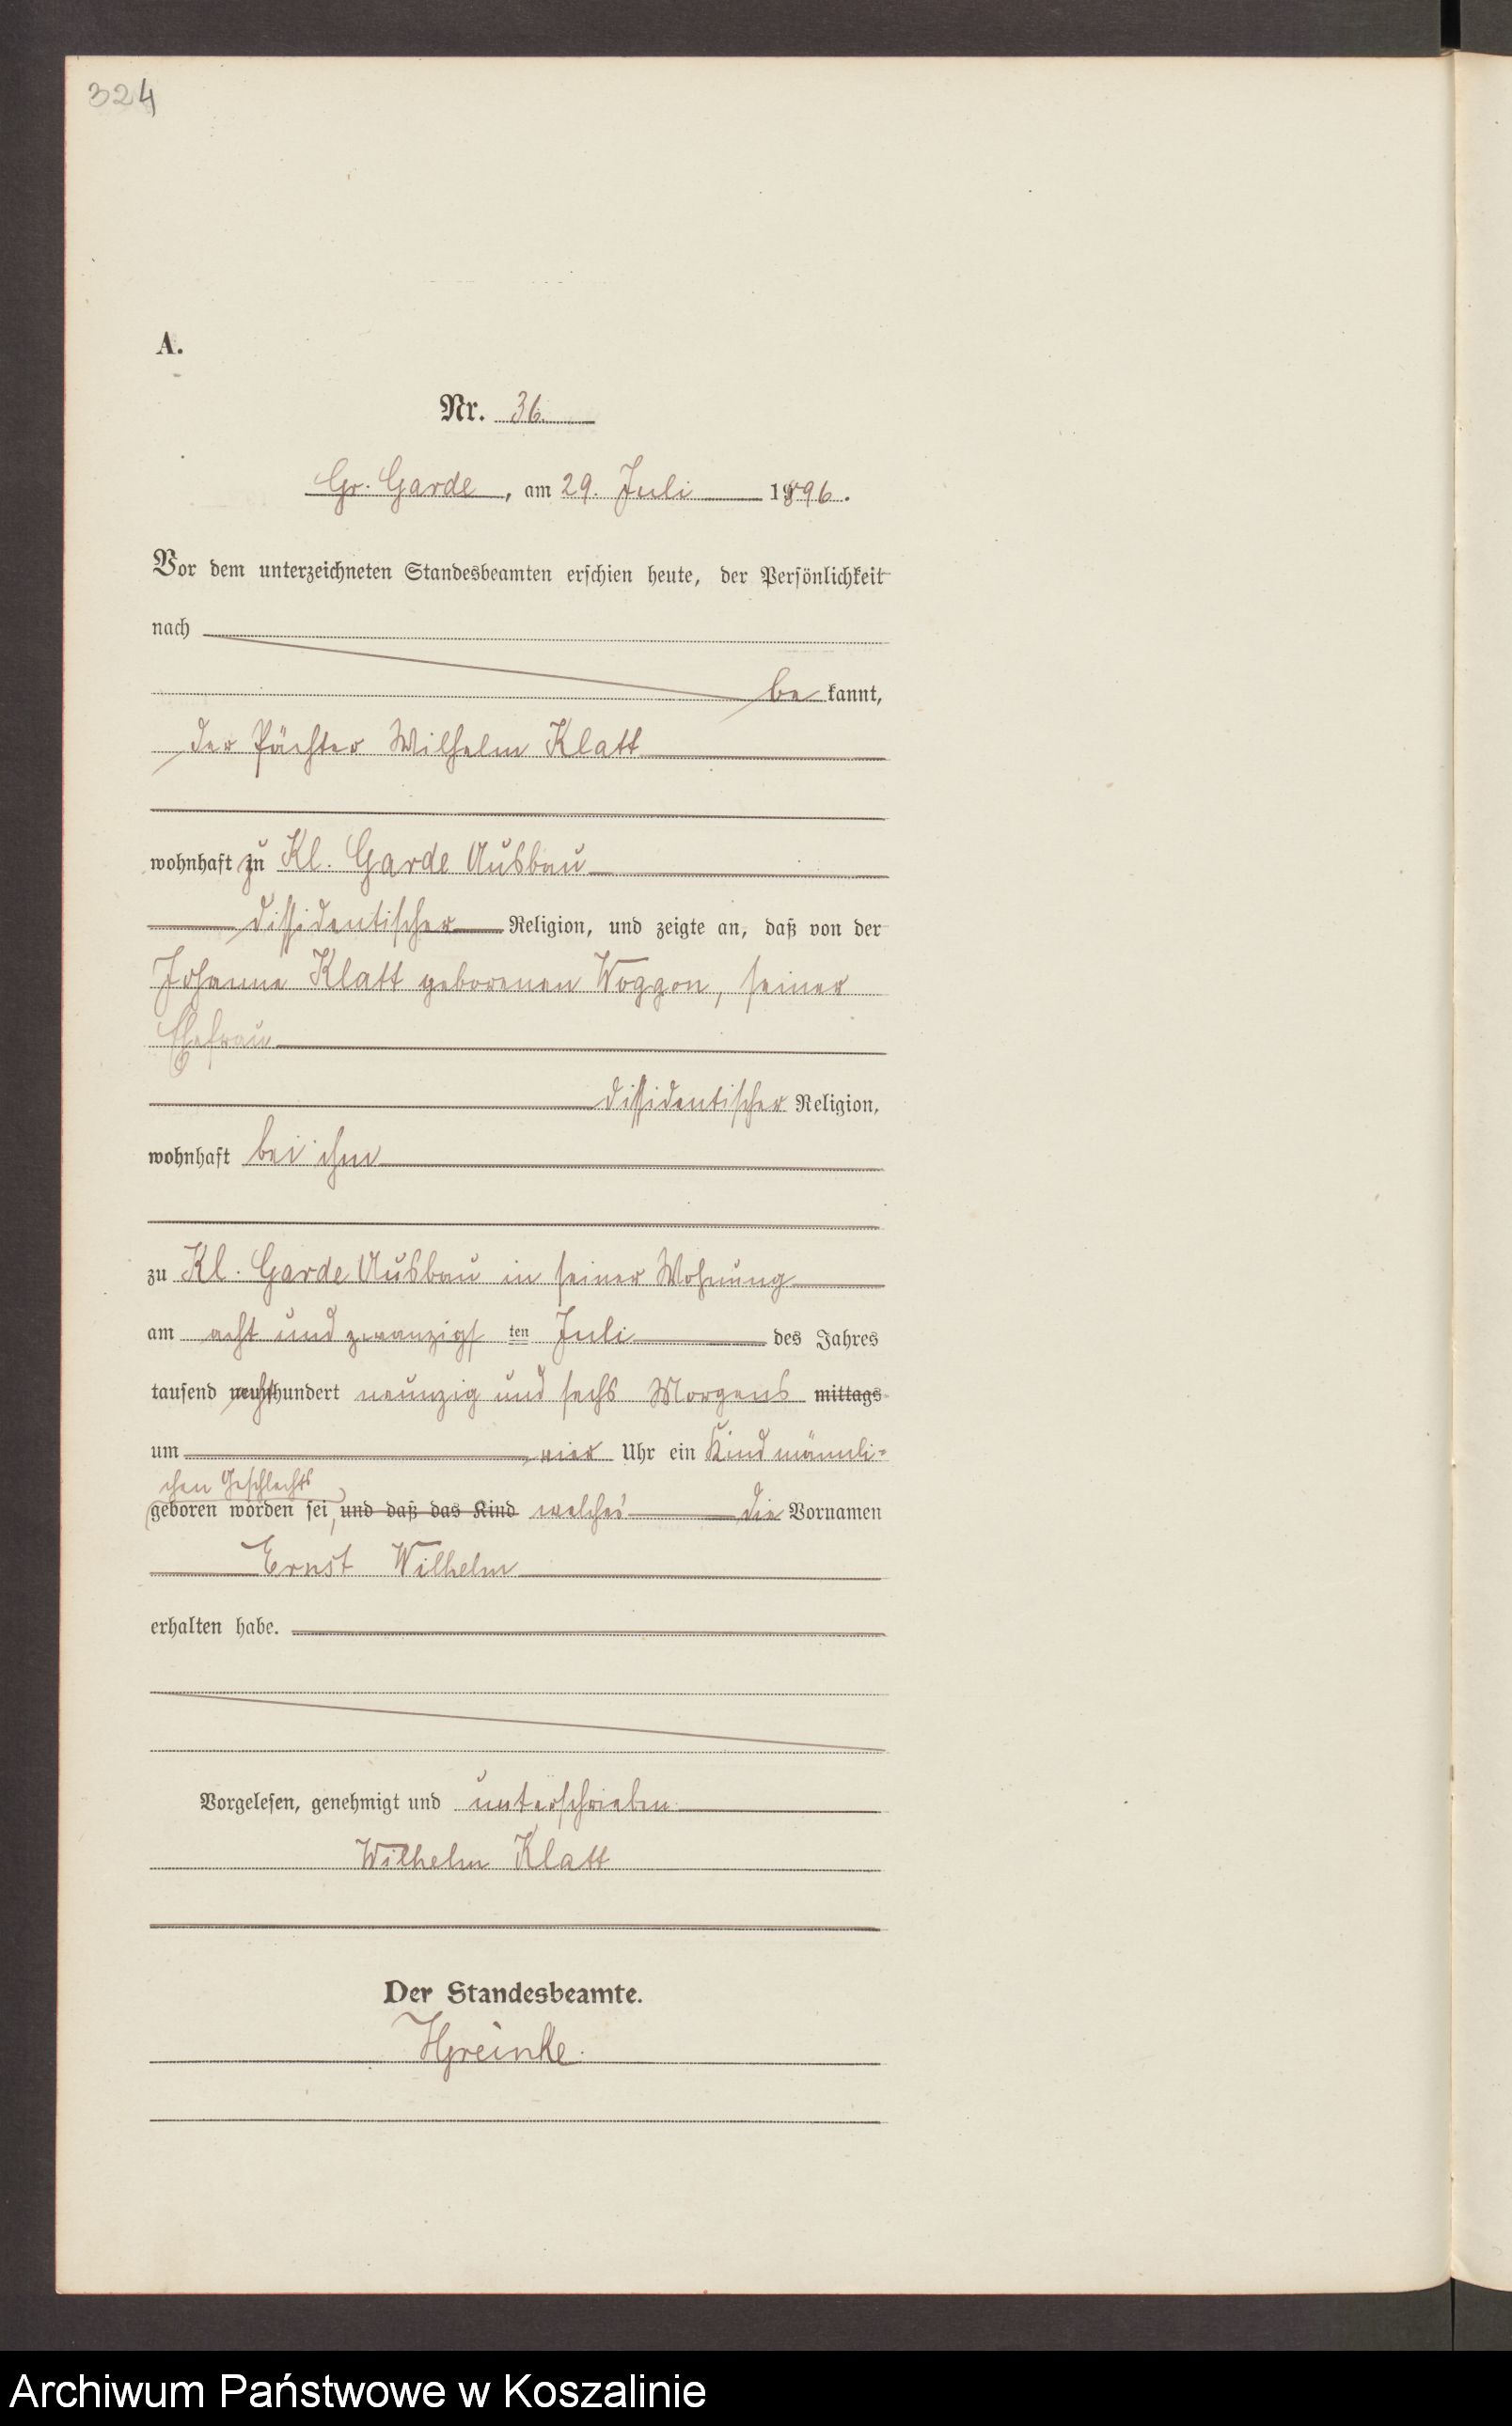 324
A.
Nr. 36.
Gr. Garde, am 29. Juli 1896.
Vor dem unterzeichneten Standesbeamten erschien heute, der Persönlichkeit
nach
be kannt,
der Pächter Wilhelm Klatt
wohnhaft zu Kl. Garde Ausbau
dissidentischer Religion, und zeigte an, daß von der
Johanne Klatt geborenen Woggon, seiner
Ehefrau
dissidentischer Religion,
wohnhaft bei ihm
zu Kl. Garde Ausbau in seiner Wohnung
am acht und zwanzigs ten Juli des Jahres
tausend achthundert neunzig und sechs Morgens mittags
um vier Uhr ein Kind männli=
chen Geschlechts
geboren worden sei, und daß das Kind welches die Vornamen
Ernst Wilhelm
erhalten habe.
Vorgelesen, genehmigt und unterschrieben
Wilhelm Klatt
Der Standesbeamte.
Archiwum Państwowe w Koszalinie